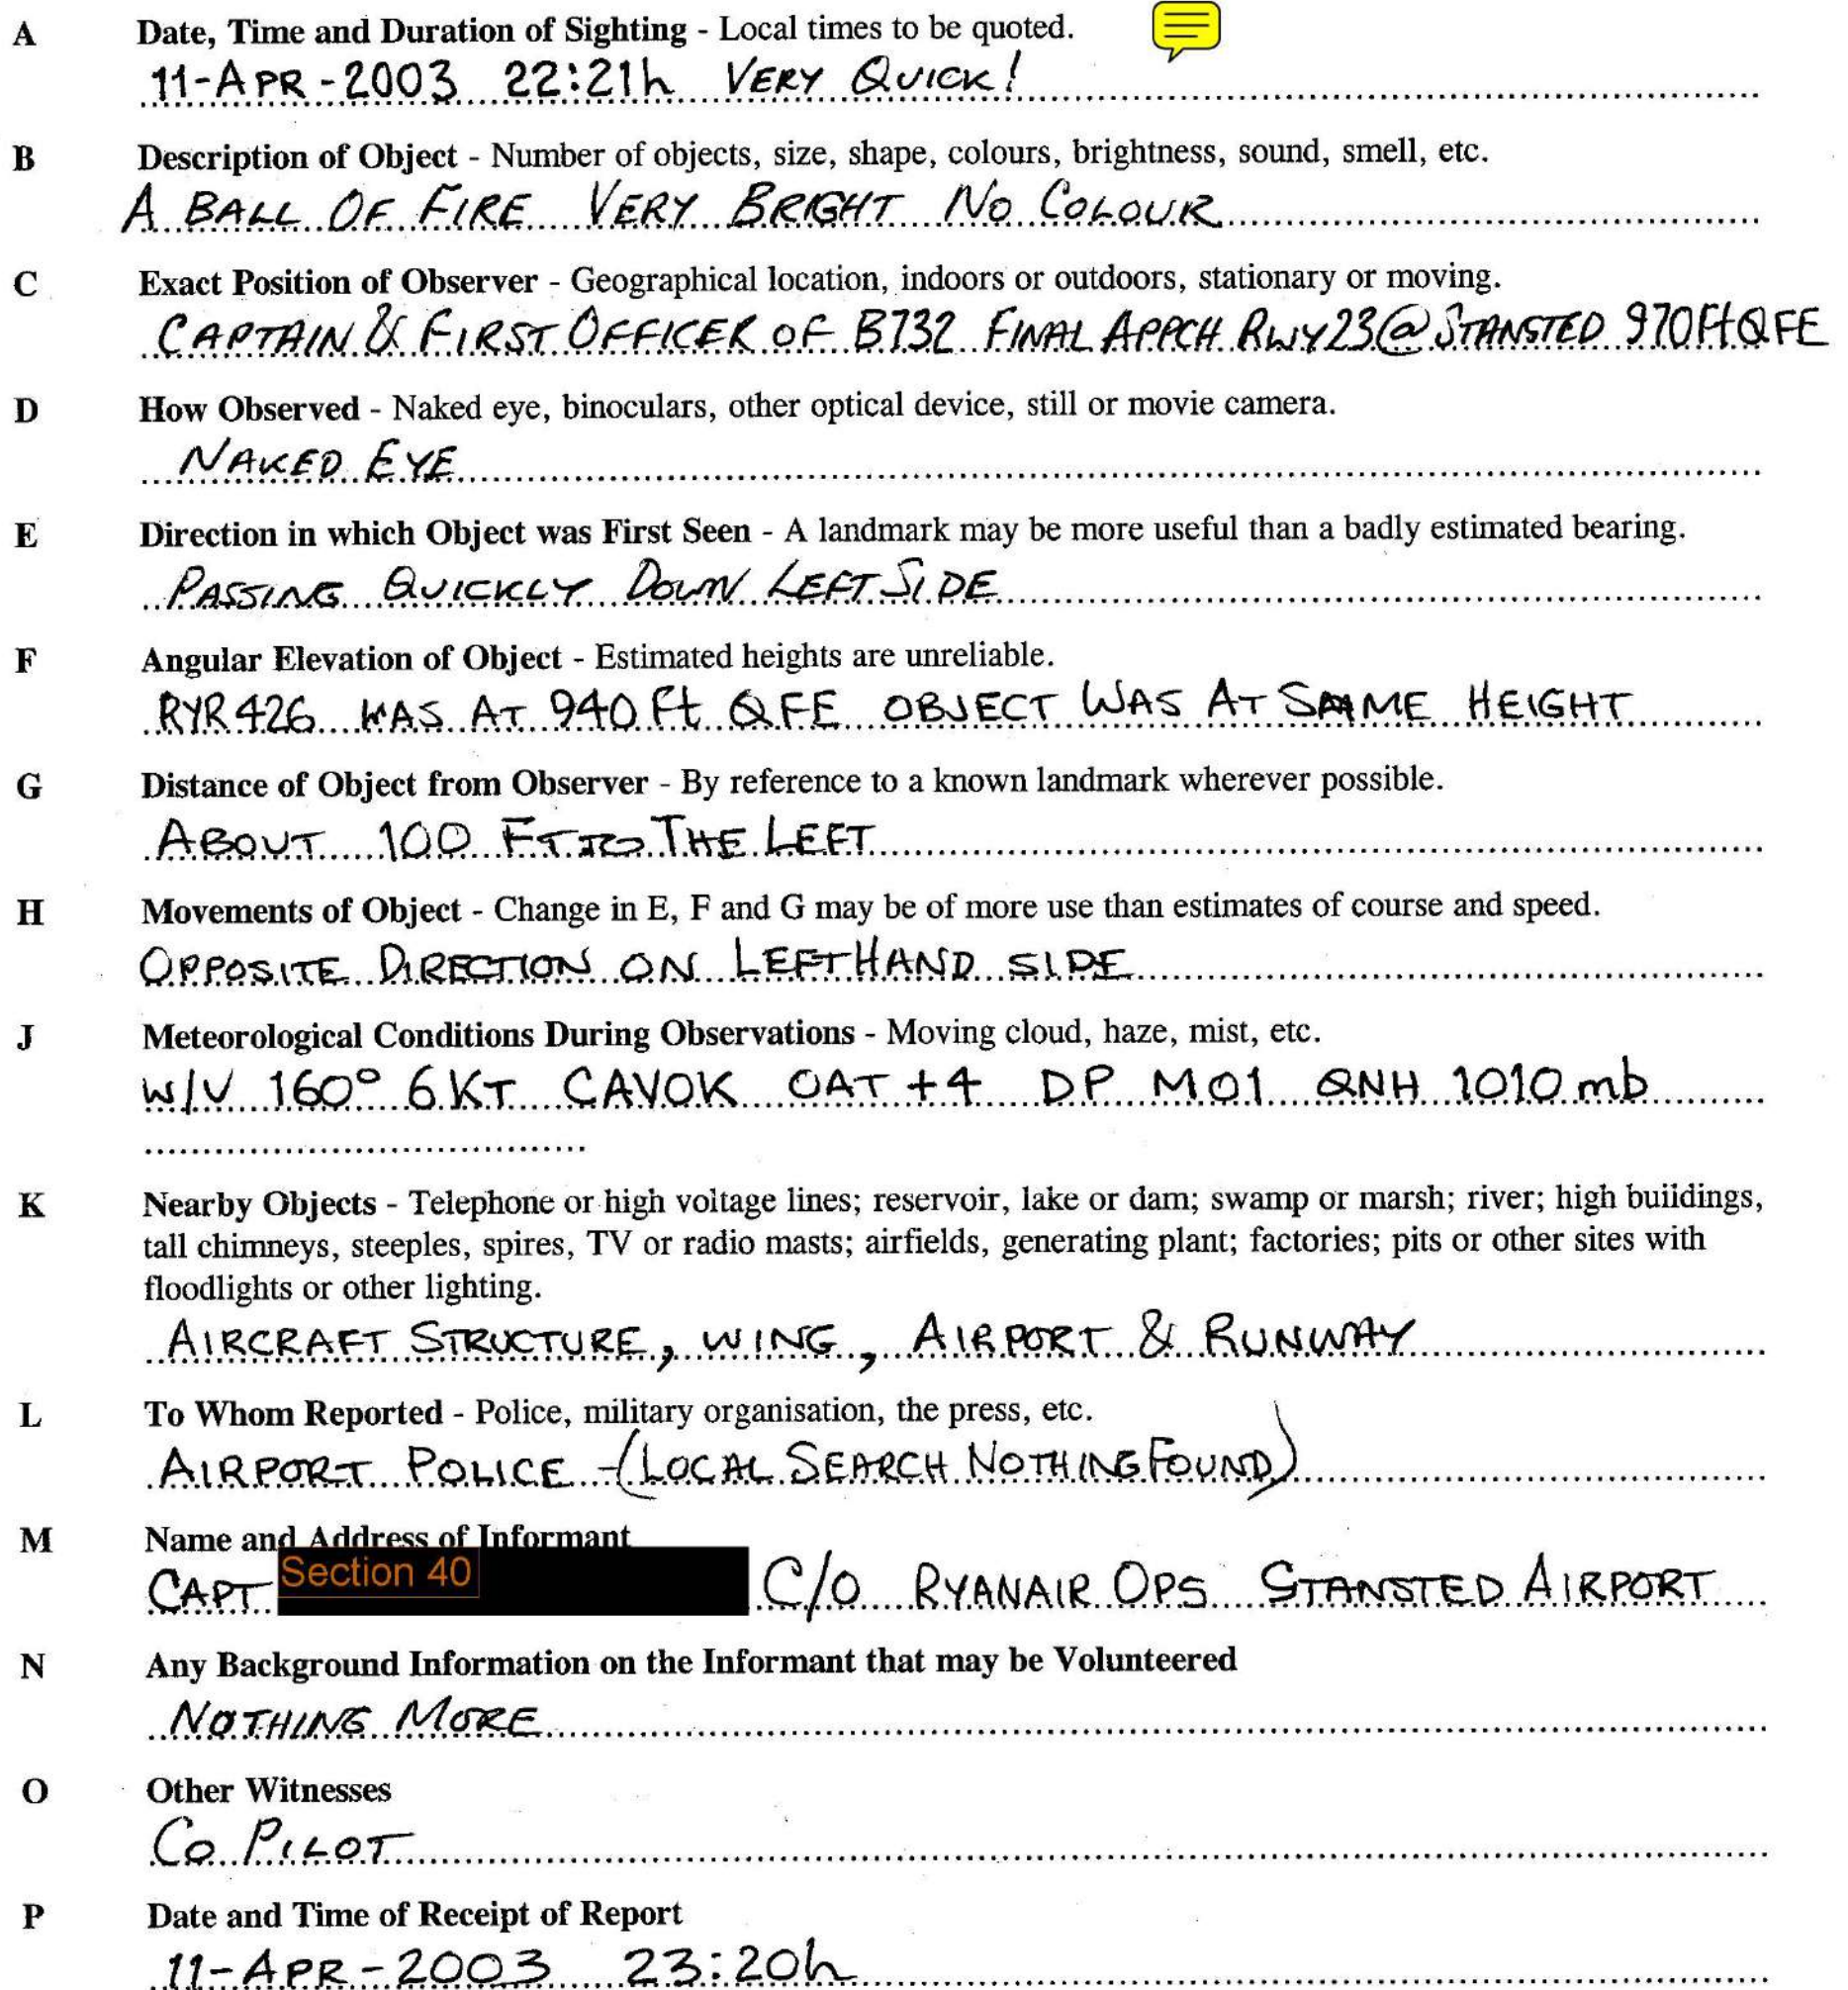 A Date, Time and Duration of Sighting - Local times to be quoted.
11-APR-2003 22:21h VERY QUICK!
B Description of Object - Number of objects, size, shape, colours, brightness, sound, smell, etc.
A BALL OF FIRE VERY BRIGHT NO COLOUR
C Exact Position of Observer - Geographical location, indoors or outdoors, stationary or moving.
CAPTAIN & FIRST OFFICER OF B732 FINAL APPCH RWY23@STANSTED 970Ft QFE
D How Observed - Naked eye, binoculars, other optical device, still or movie camera.
NAKED EYE
E Direction in which Object was First Seen - A landmark may be more useful than a badly estimated bearing.
PASSING QUICKLY DOWN LEFT SIDE
F Angular Elevation of Object - Estimated heights are unreliable.
RYR426 WAS AT 940 Ft QFE OBJECT WAS AT SAME HEIGHT
G Distance of Object from Observer - By reference to a known landmark wherever possible.
ABOUT 100 FT TO THE LEFT
H Movements of Object - Change in E, F and G may be of more use than estimates of course and speed.
OPPOSITE DIRECTION ON LEFT HAND SIDE
J Meteorological Conditions During Observations - Moving cloud, haze, mist, etc.
W/V 160° 6KT CAVOK OAT +4 DP M01 QNH 1010 mb
K Nearby Objects - Telephone or high voltage lines; reservoir, lake or dam; swamp or marsh; river; high buildings,
tall chimneys, steeples, spires, TV or radio masts; airfields, generating plant; factories; pits or other sites with
floodlights or other lighting.
AIRCRAFT STRUCTURE, WING, AIRPORT & RUNWAY
L To Whom Reported - Police, military organisation, the press, etc.
AIRPORT POLICE - (LOCAL SEARCH NOTHING FOUND)
M Name and Address of Informant
CAPT Section 40 C/O RYANAIR OPS STANSTED AIRPORT
N Any Background Information on the Informant that may be Volunteered
NOTHING MORE
O Other Witnesses
CO PILOT
P Date and Time of Receipt of Report
11-APR-2003 23:20h